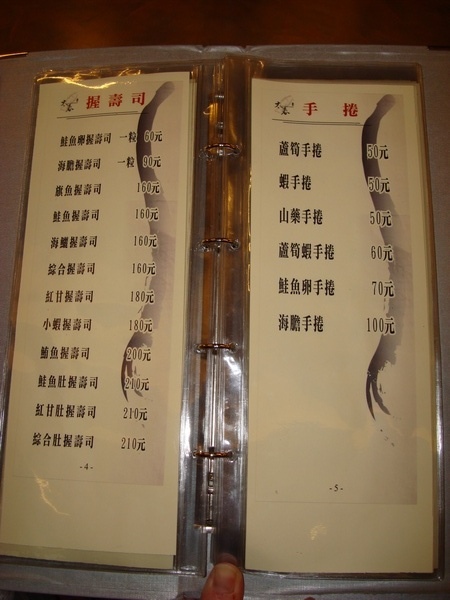 握壽司
鮭魚卵握壽司 一粒 60元
海膽握壽司 一粒 90元
旗魚握壽司 160元
鮭魚握壽司 160元
海鱺握壽司 160元
綜合握壽司 160元
紅甘握壽司 180元
小蝦握壽司 180元
鮪魚握壽司 200元
鮭魚肚握壽司 210元
紅甘肚握壽司 210元
綜合肚握壽司 210元
-4-
手 捲
蘆筍手捲 50元
蝦手捲 50元
山藥手捲 50元
蘆筍蝦手捲 60元
鮭魚卵手捲 70元
海膽手捲 100元
-5-